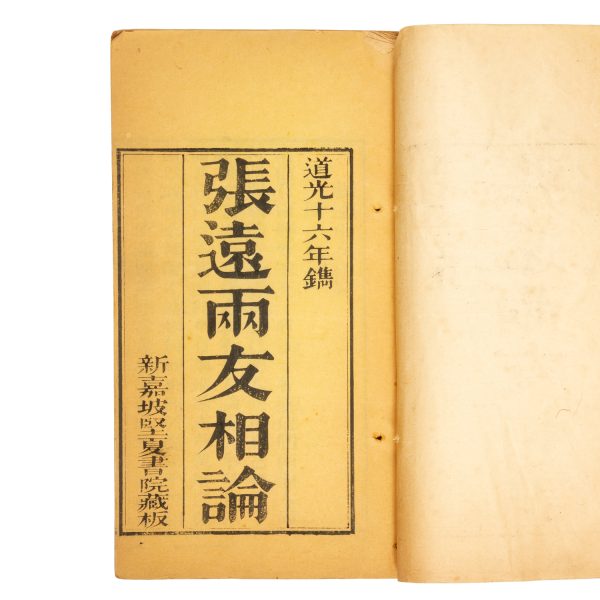 道光十六年鐫
張遠兩友相論
新嘉坡堅夏書院藏板